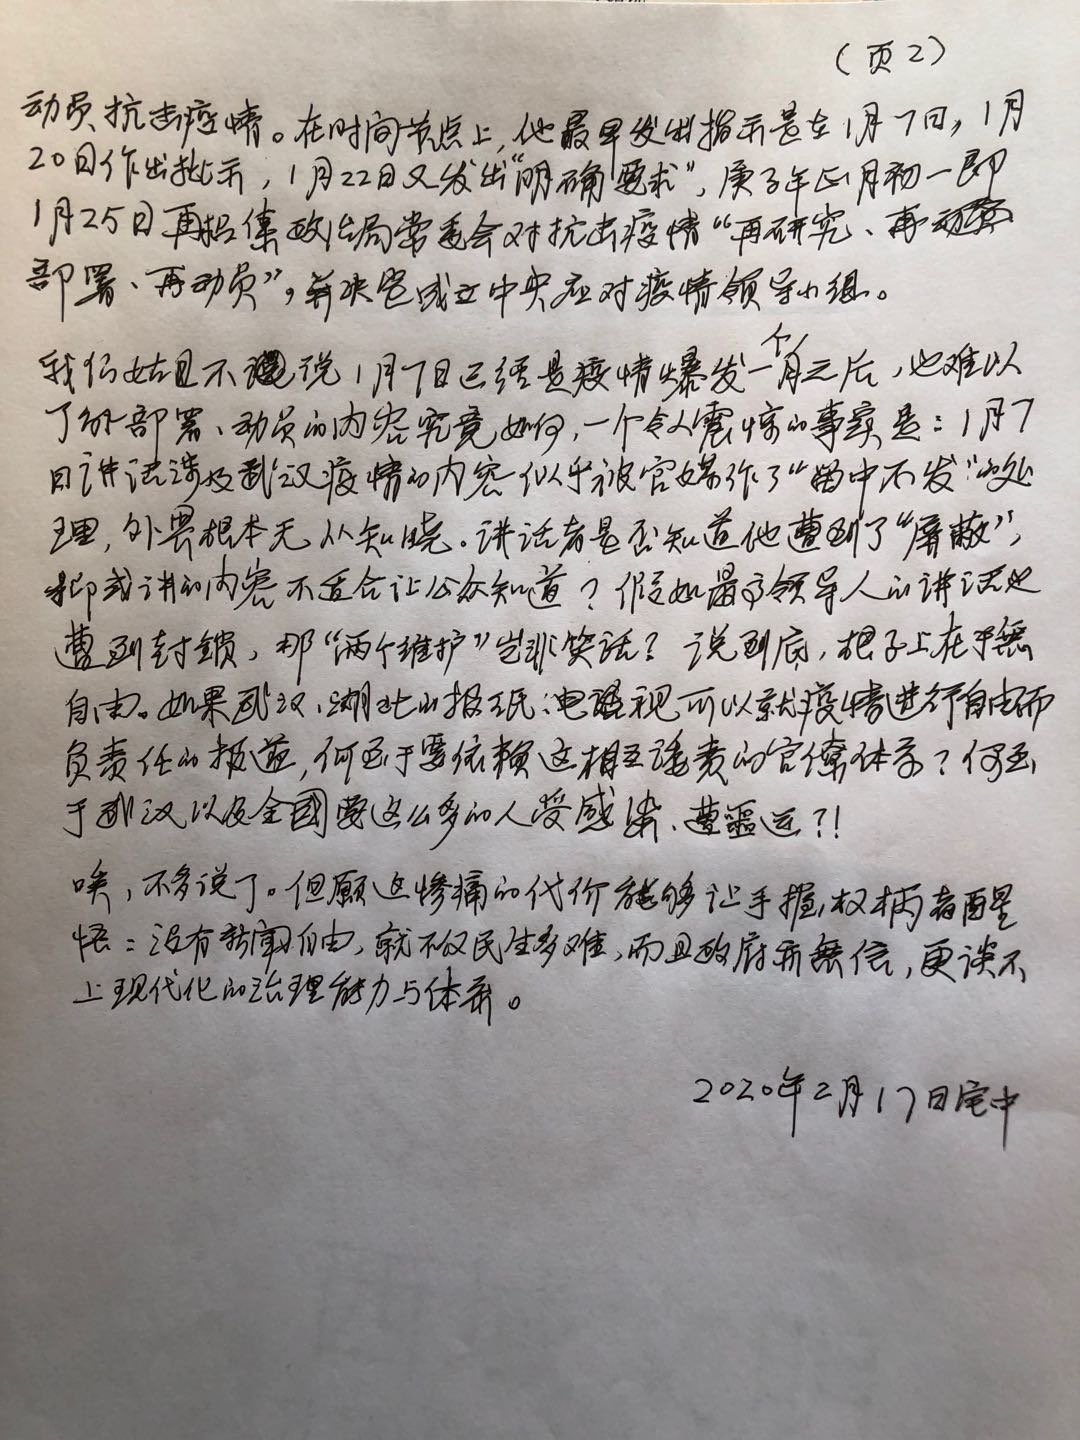 （页2）
动员抗击疫情。在时间节点上，他最早发出指示是在1月7日，1月
20日作出批示，1月22日又发出“明确要求”，庚子年正月初一即
1月25日再招集政治局常委会对抗击疫情“再研究、再
部署、再动员”，并决定成立中央应对疫情领导小组。
我们姑且不说1月7日已经是疫情爆发一个月之后，也难以
了解部署、动员的内容究竟如何，一个令人震惊的事实是：1月7
日讲话涉及武汉疫情的内容似乎被官媒作了“留中不发”的处
理，外界根本无从知晓。讲话者是否知道他遭到了“屏蔽”，
抑或讲的内容不适合让公众知道？假如最高领导人的讲话也
遭到封鎖，那“两个维护”岂非笑话？说到底，根子上在于無
自由。如果武汉、湖北的报纸、电视可以就疫情进行自由而
负责任的报道，何至于要依赖这相互诿责的官僚体系？何至
于武汉以及全國要这么多的人受感染、遭噩运？！
唉，不多说了。但愿这惨痛的代价能够让手握权柄者醒
悟：没有新闻自由，就不仅民生多难，而且政府亦無信，更谈不
上现代化的治理能力与体系。
2020年2月17日宅中